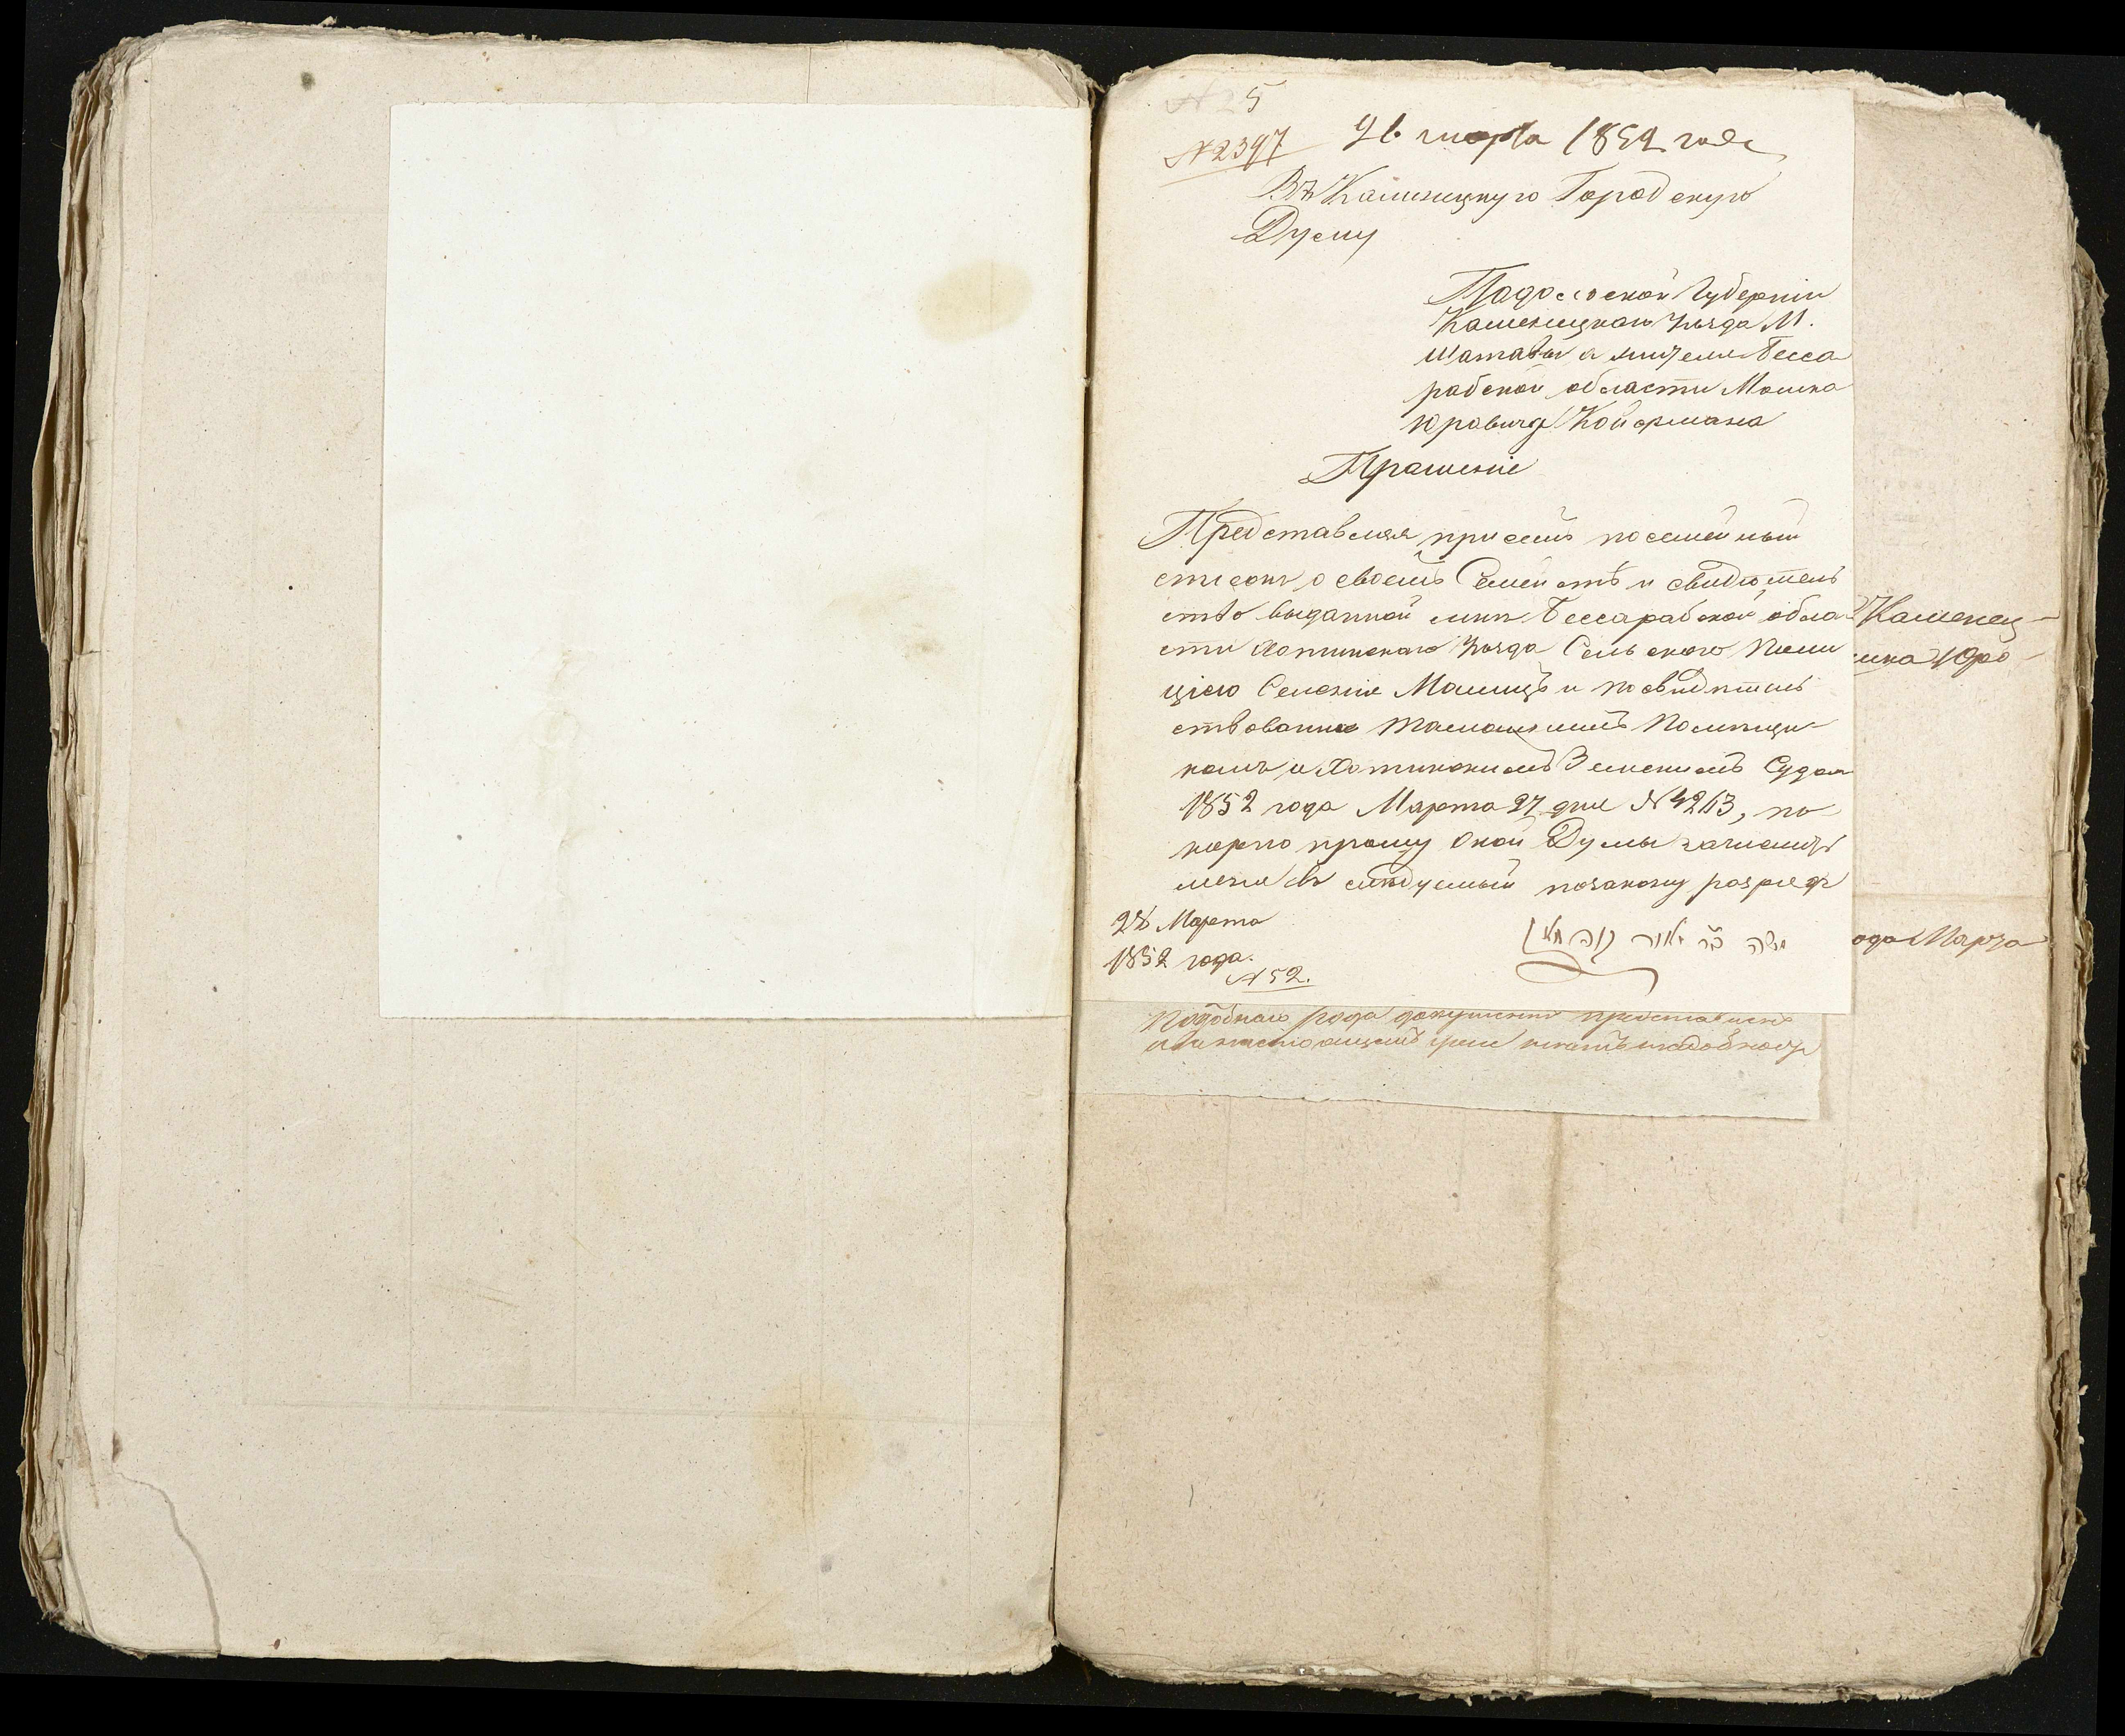 № 25
№ 2397
марта 1852 года
Въ Каменецкую Городскую
Думу
Падолской Губерніи
Каменецкаго Уѣзда М.
Шатавы а жителя Бесса
рабской области Мошка
Юровича Койфмана
Прашеніе
Представляя при семъ посемейный
списокъ о своемъ Семействѣ и свидѣтель
ство выданной мнѣ Бессарабской обла
сти Хотинскаго Уѣзда Сельского Поли
ціею Селенія Малинцъ и посвидѣтель
ствованне тамашнимъ Помѣщи-
комъ и Хотинскимъ Земскимъ Судом
1852 года Марта 27 дня № 4213, по-
корно прошу оной Думы зачислить
меня въ слѣдуемый позакону разрядъ
28 Марта
1852 года.
№ 52.
משה בר
Каменец-
шка Юро
ода Марта
Подобнаго рода документ представлен